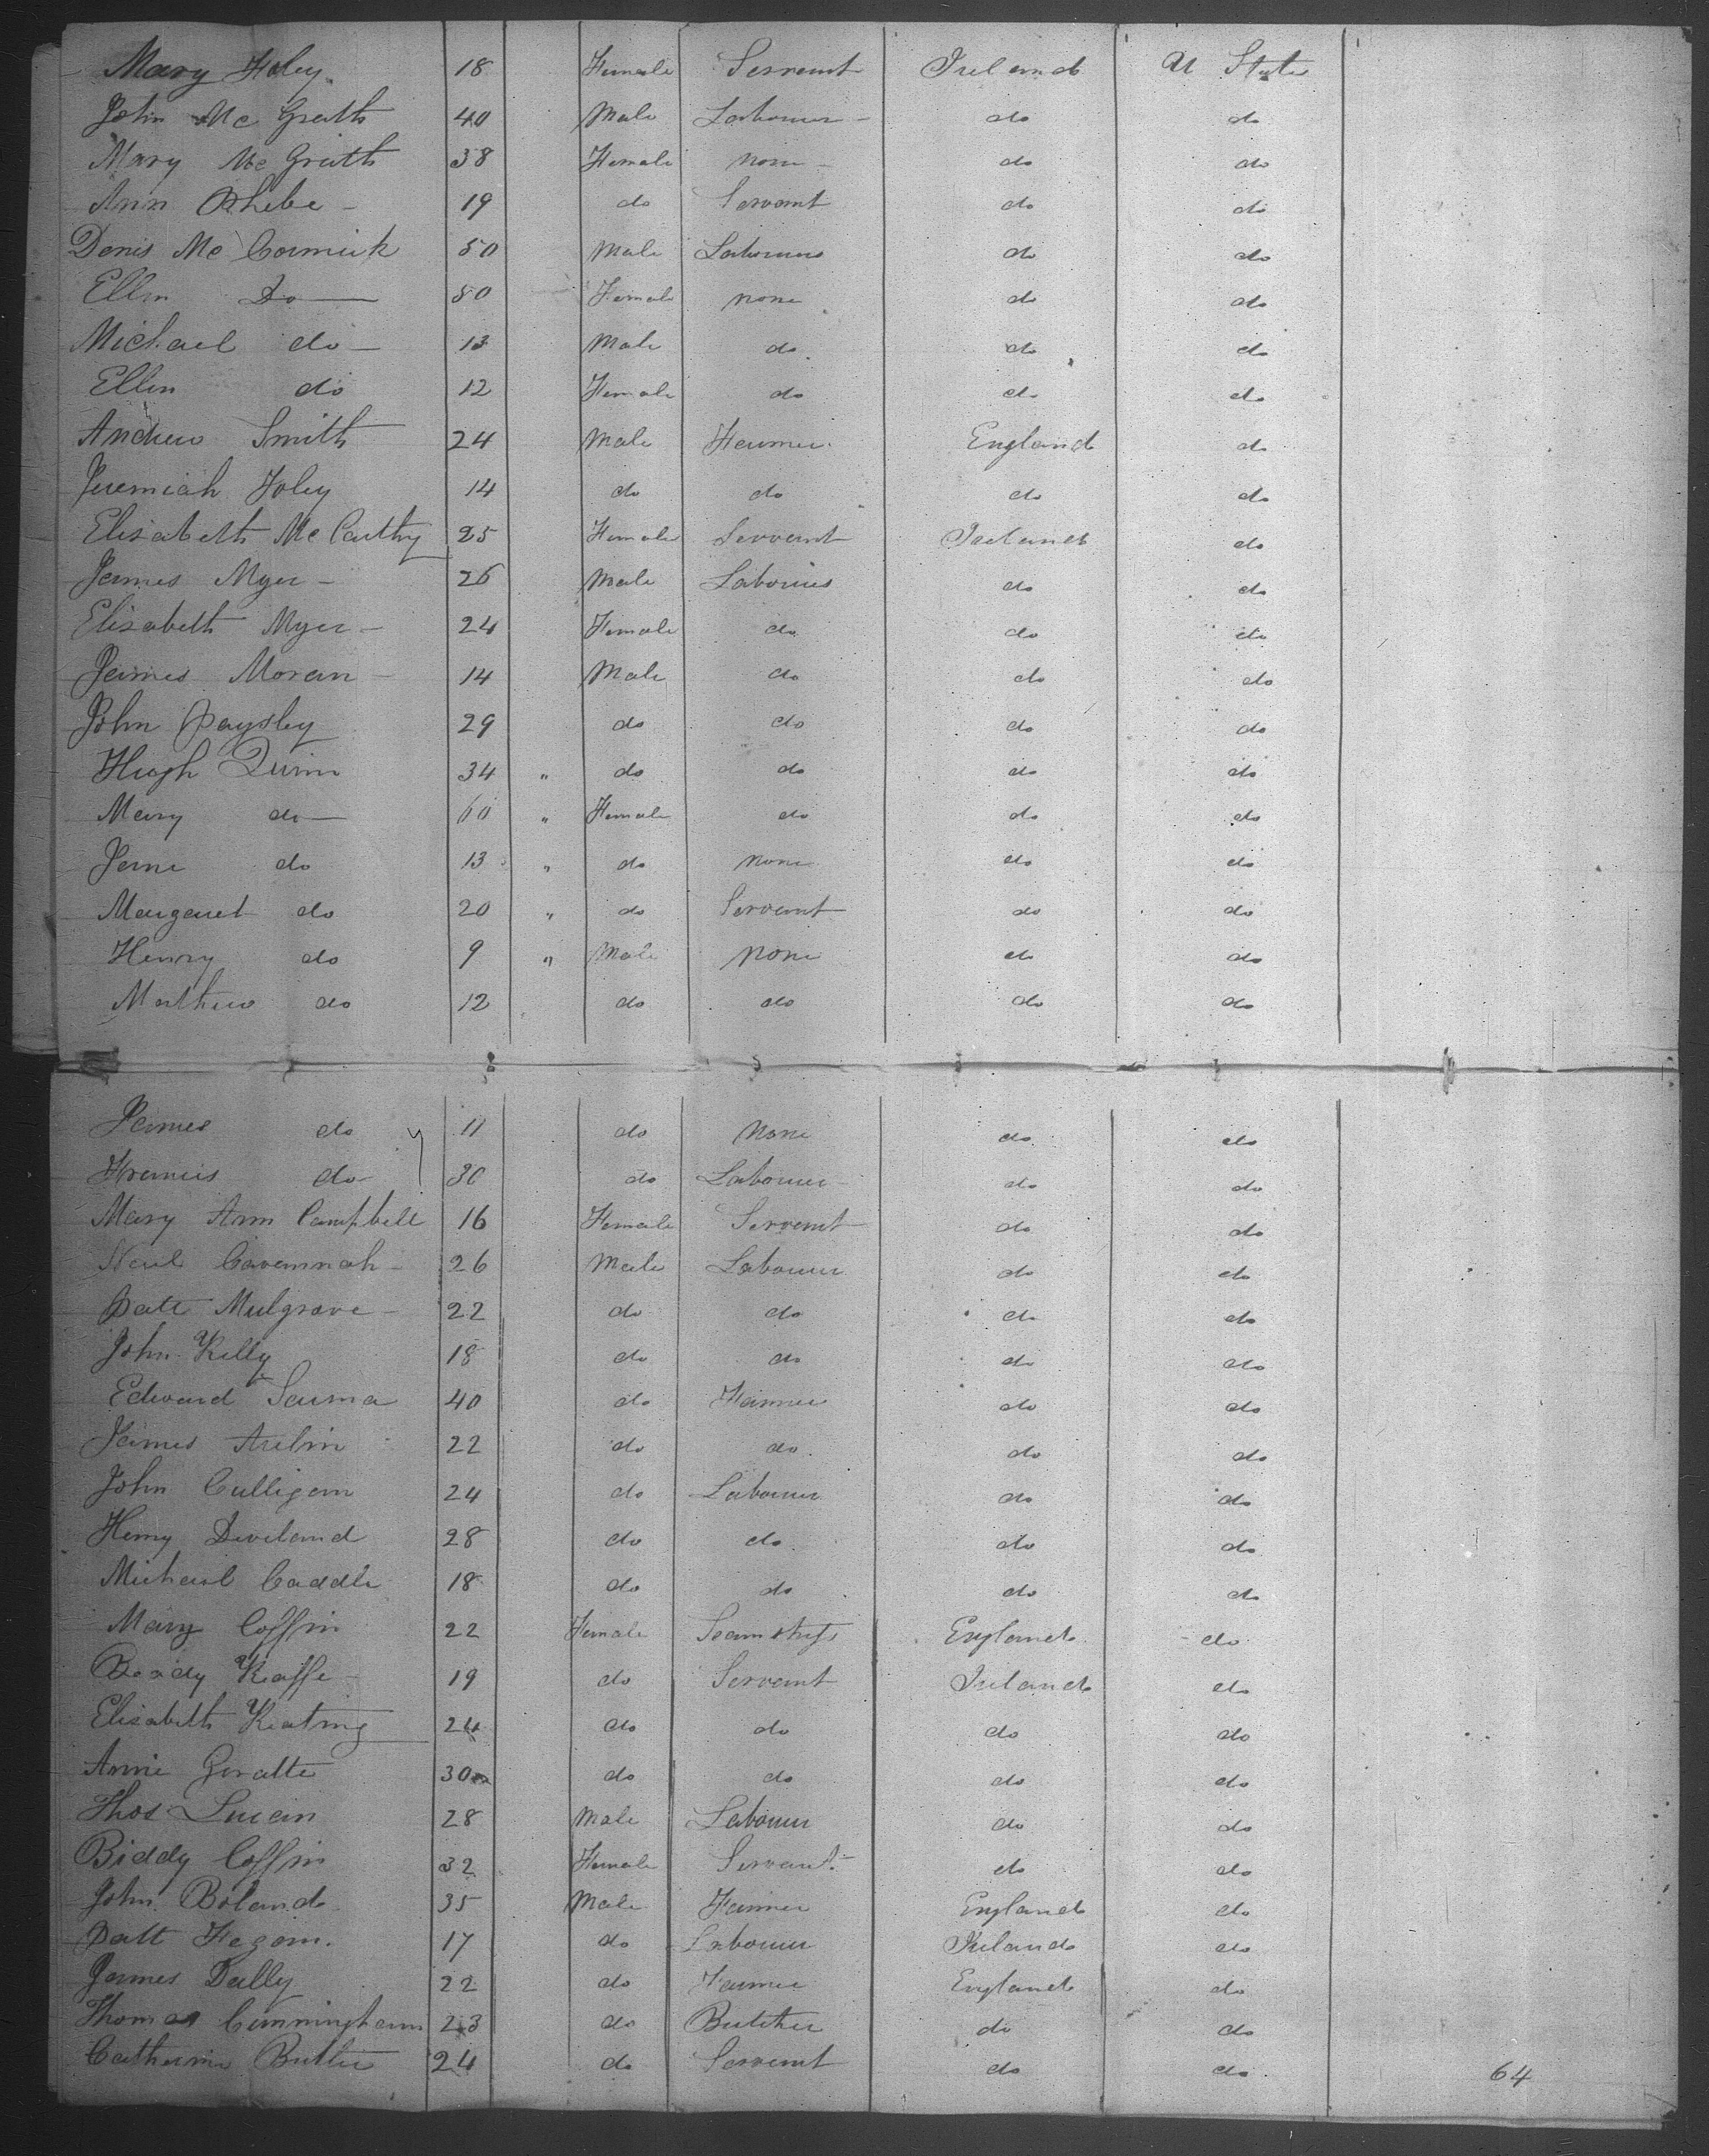 Mary Foley 18 Female Servant Ireland U States
John Mc Grath 40 Male Labourer do do
Mary Mc Grath 38 Female none do do
Ann Phebe 19 do Servant do do
Denis Mc Cormick 50 Male Labourer do do
Ellen Do 50 Female none do do
Michael do 13 Male do do do
Ellen do 12 Female do do do
Andrew Smith 24 Male Farmer England do
Jeremiah Foley 14 do do do do
Elisabeth Mc Carthy 25 Female Servant Ireland do
James Myer 26 Male Labourer do do
Elisabeth Myer 24 Female do do do
James Moran 14 Male do do do
John Paysley 29 do do do do
Hugh Quinn 34 " do do do do
Mary do 60 " Female do do do
Jane do 13 " do none do do
Margaret do 20 " do Servant do do
Henry do 9 " Male none do do
Mathew do 12 do do do do
James do 11 do none do do
Francis do 30 do Labourer do do
Mary Ann Campbell 16 Female Servant do do
Neil Cavannah 26 Male Labourer do do
Patt Mulgrave 22 do do do do
John Kelly 18 do do do do
Edward 40 do Farmer do do
James 22 do do do do
John Culligan 24 do Labourer do do
Henry Develand 28 do do do do
Michael Caddle 18 do do do do
Mary Coffin 22 Female Seamstress England do
Biddy Keaffe 19 do Servant Ireland do
Elisabeth Keating 24 do do do do
Annie 30 do do do do
Thos 28 Male Labourer do do
Biddy Coffin 32 Female Servant do do
John Boland 35 Male Farmer England do
Patt Fegan. 17 do Labourer Ireland do
James Dally 22 do Farmer England do
Thomas Cunningham 23 do Butcher do do
Catherine Butler 24 do Servant do do
64